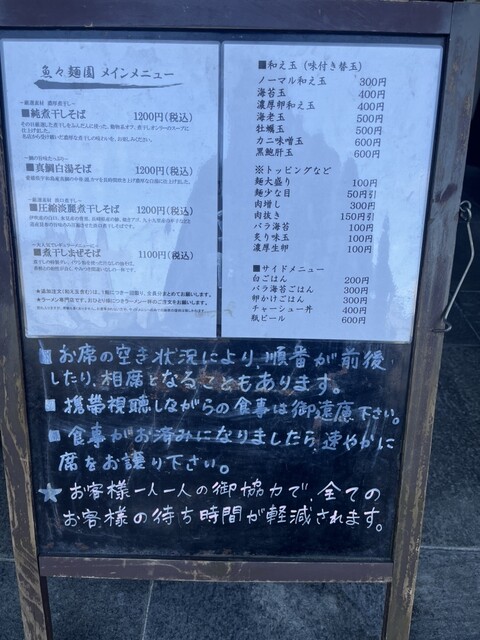 魚々麺園 メインメニュー
～厳選素材 濃厚煮干し～
■純煮干しそば 1200円(税込)
～鯛の旨味たっぷり～
■真鯛白湯そば 1200円(税込)
～厳選素材 淡口煮干し～
■圧縮淡麗煮干しそば 1200円(税込)
■煮干しまぜそば 1100円(税込)
■和え玉（味付き替玉）
ノーマル和え玉 300円
海苔玉 400円
濃厚卵和え玉 400円
海老玉 500円
牡蠣玉 500円
カニ味噌玉 600円
黒鮑肝玉 600円
※トッピングなど
麺大盛り 100円
麺少な目 50円引
肉増し 300円
肉抜き 150円引
バラ海苔 100円
炙り味玉 100円
濃厚生卵 100円
■サイドメニュー
白ごはん 200円
バラ海苔ごはん 300円
卵かけごはん 300円
チャーシュー丼 400円
瓶ビール 600円
■お席の空き状況により、順番が前後
したり、相席となることもあります。
■携帯視聴しながらの食事は御遠慮下さい。
■食事がお済みになりましたら、速やかに
席をお譲り下さい。
★お客様一人一人の御協力で、全ての
お客様の待ち時間が軽減されます。